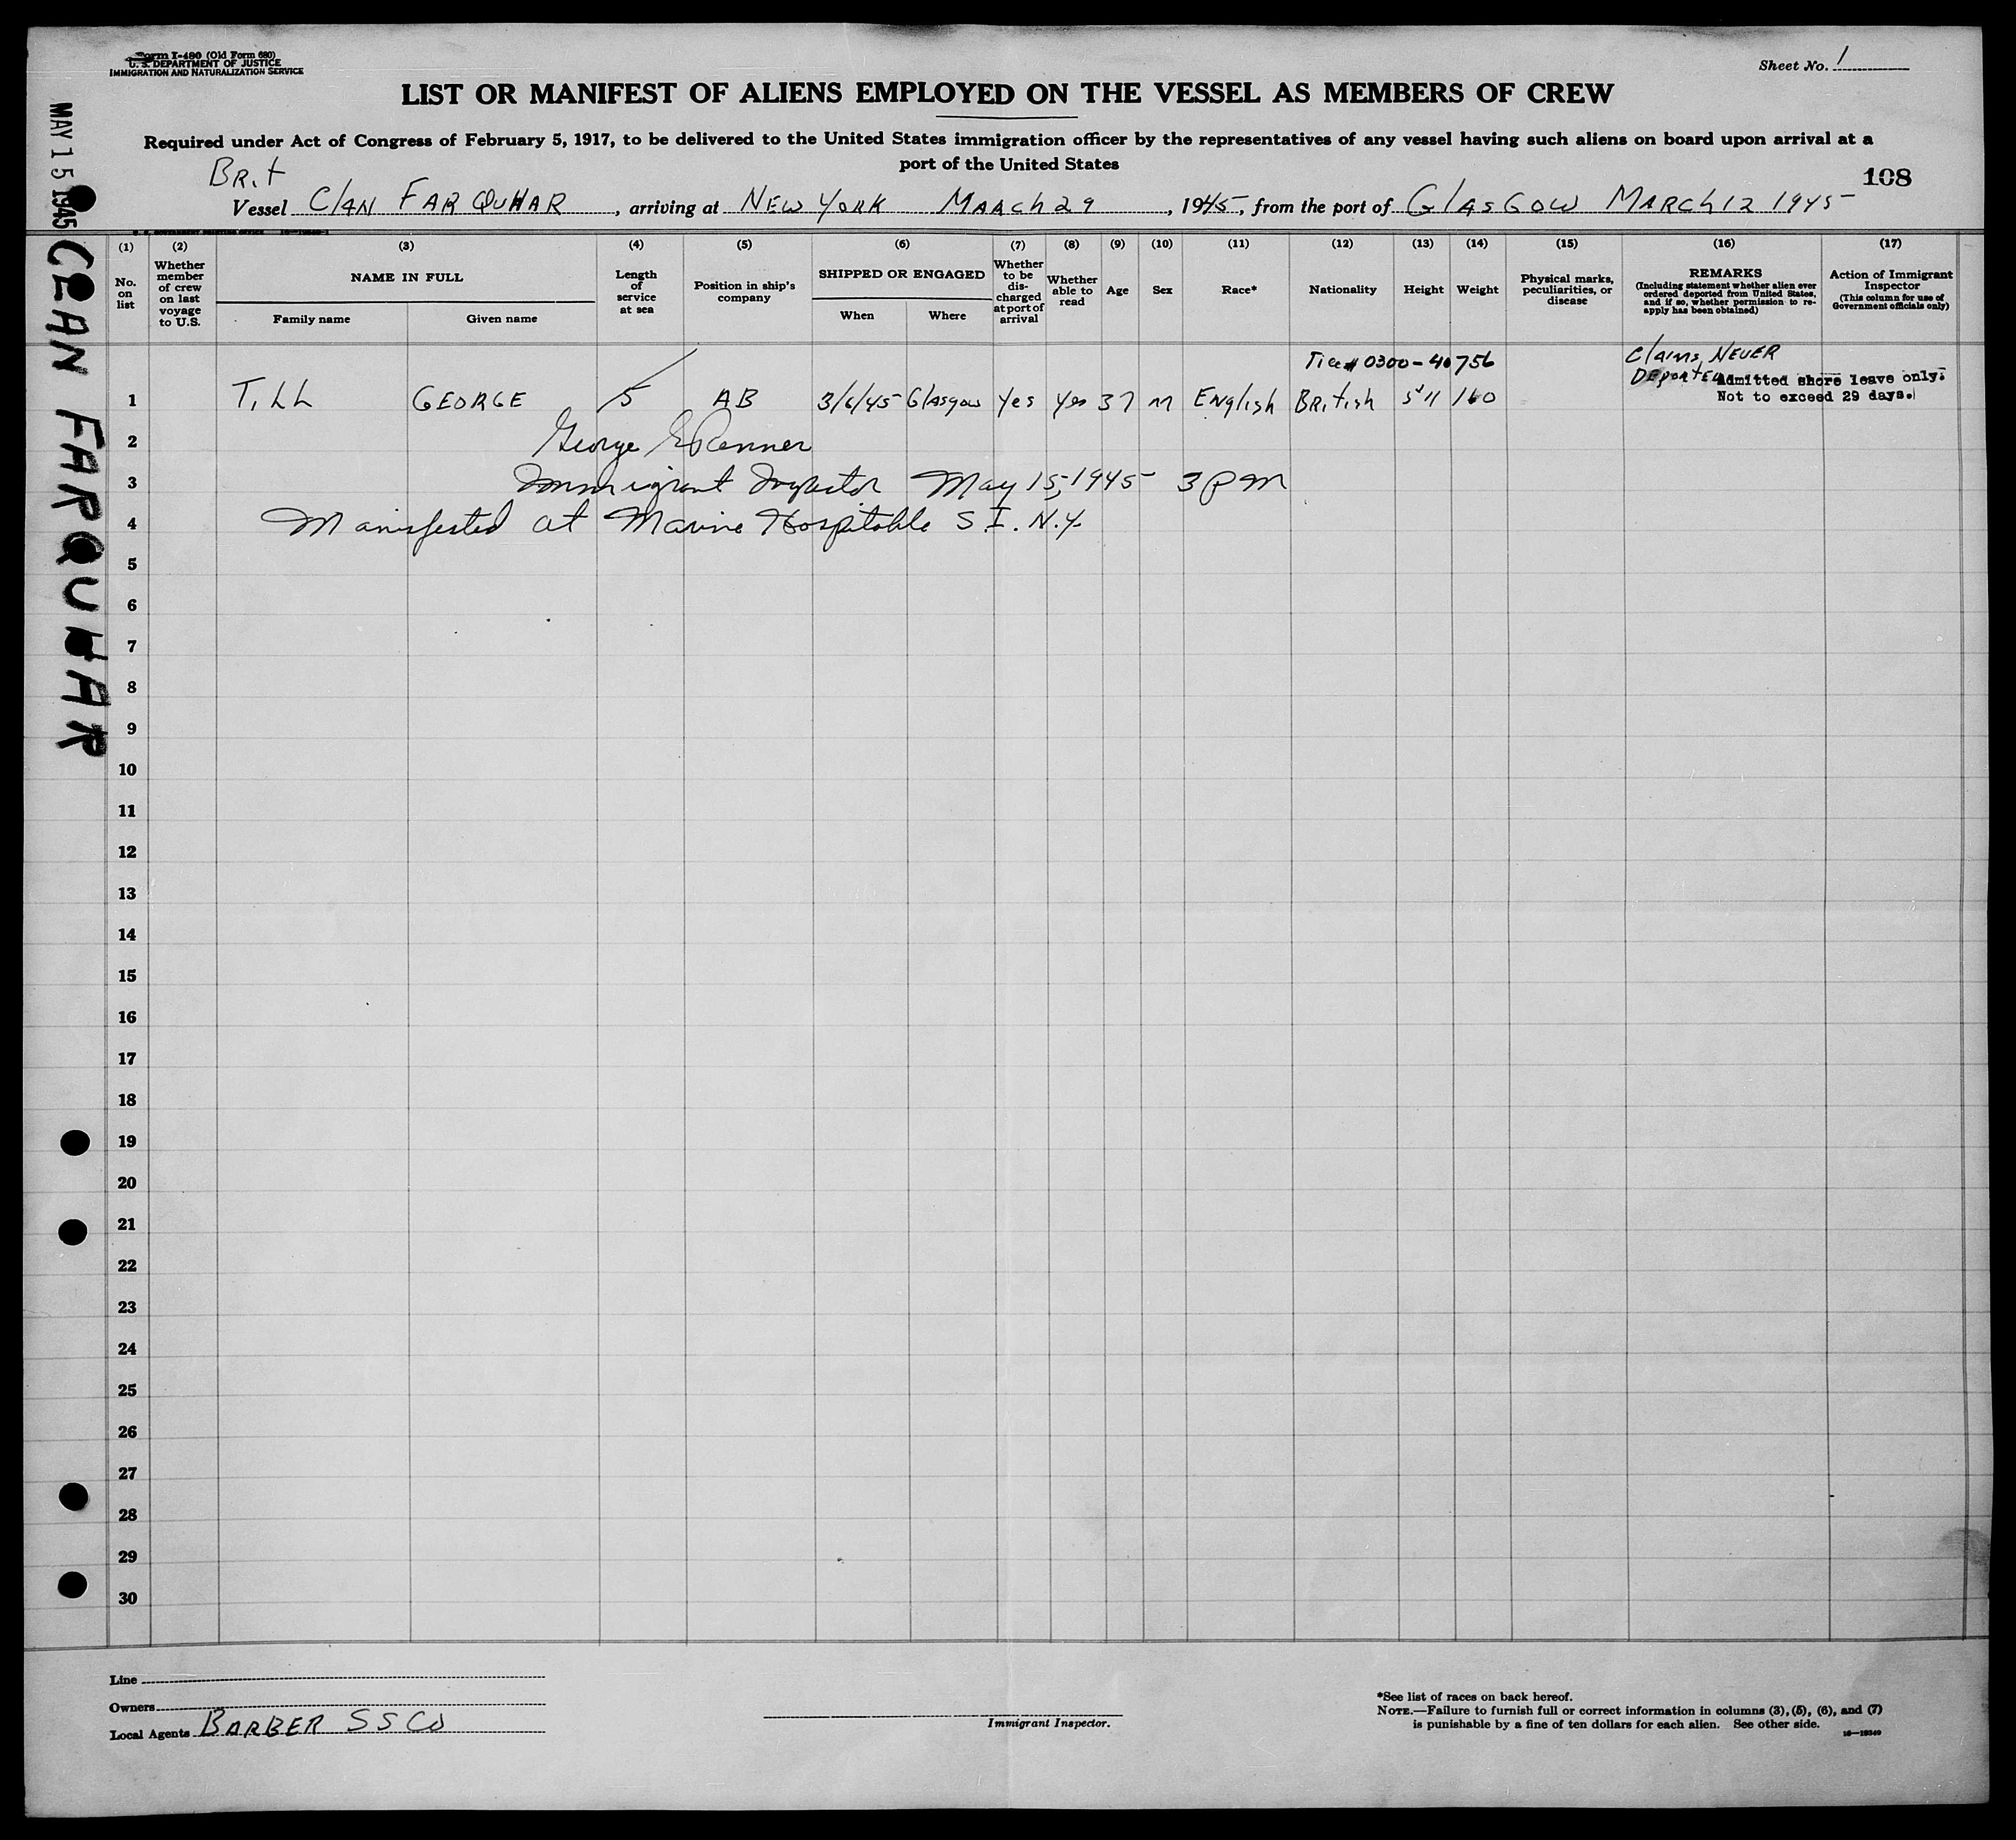 Form I-480 (Old Form 680)
U. S. DEPARTMENT OF JUSTICE
IMMIGRATION AND NATURALIZATION SERVICE
Sheet No. 1
LIST OR MANIFEST OF ALIENS EMPLOYED ON THE VESSEL AS MEMBERS OF CREW
Required under Act of Congress of February 5, 1917, to be delivered to the United States immigration officer by the representatives of any vessel having such aliens on board upon arrival at a
port of the United States
108
Brit
Vessel Clan Farquhar, arriving at New York March 29, 1945, from the port of Glasgow March 12 1945
MAY 15 1945
CLAN FARQUHAR
(1) (2) (3) (4) (5) (6) (7) (8) (9) (10) (11) (12) (13) (14) (15) (16) (17)
No. on list
Whether member of crew on last voyage to U.S.
NAME IN FULL
Family name
Given name
Length of service at sea
Position in ship's company
SHIPPED OR ENGAGED
When
Where
Whether to be discharged at port of arrival
Whether able to read
Age
Sex
Race*
Nationality
Height
Weight
Physical marks, peculiarities, or disease
REMARKS
(Including statement whether alien ever ordered deported from United States, and if so, whether permission to reapply has been obtained)
Action of Immigrant Inspector
(This column for use of Government officials only)
0300-40756
Claims Never
Deported Admitted shore leave only.
1 Till George 5 AB 3/6/45 Glasgow Yes Yes 37 M English British 5'11 160 Not to exceed 29 days.
2 George Renner
3 Immigrant Inspector May 15, 1945 3 PM
4 Manisfested at Marine Hospitable S.I. N.Y.
5
6
7
8
9
10
11
12
13
14
15
16
17
18
19
20
21
22
23
24
25
26
27
28
29
30
Line
Owners
Local Agents Barber SS Co
Immigrant Inspector.
*See list of races on back hereof.
NOTE.—Failure to furnish full or correct information in columns (3), (5), (6), and (7)
is punishable by a fine of ten dollars for each alien. See other side.